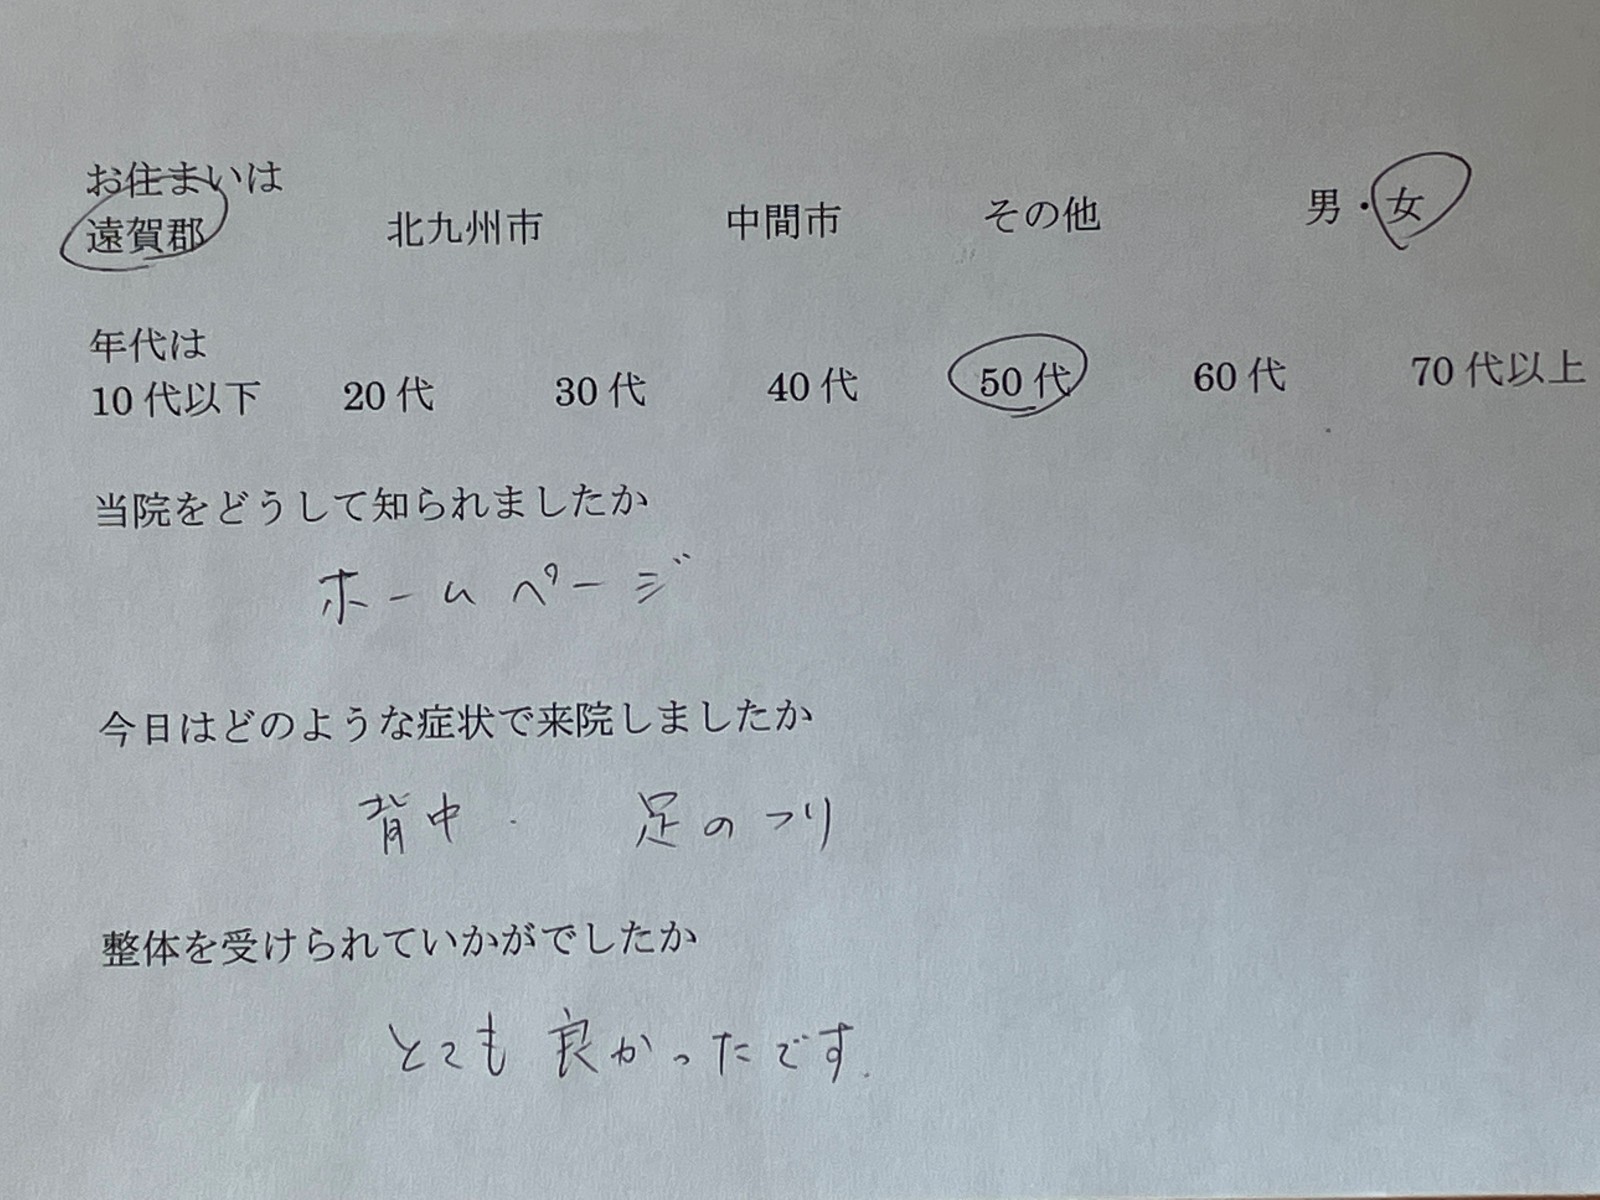 お住まいは
遠賀郡 北九州市 中間市 その他 男・女
年代は
10代以下 20代 30代 40代 50代 60代 70代以上
当院をどうして知られましたか
ホームページ
今日はどのような症状で来院しましたか
背中. 足のつり
整体を受けられていかがでしたか
とても良かったです.